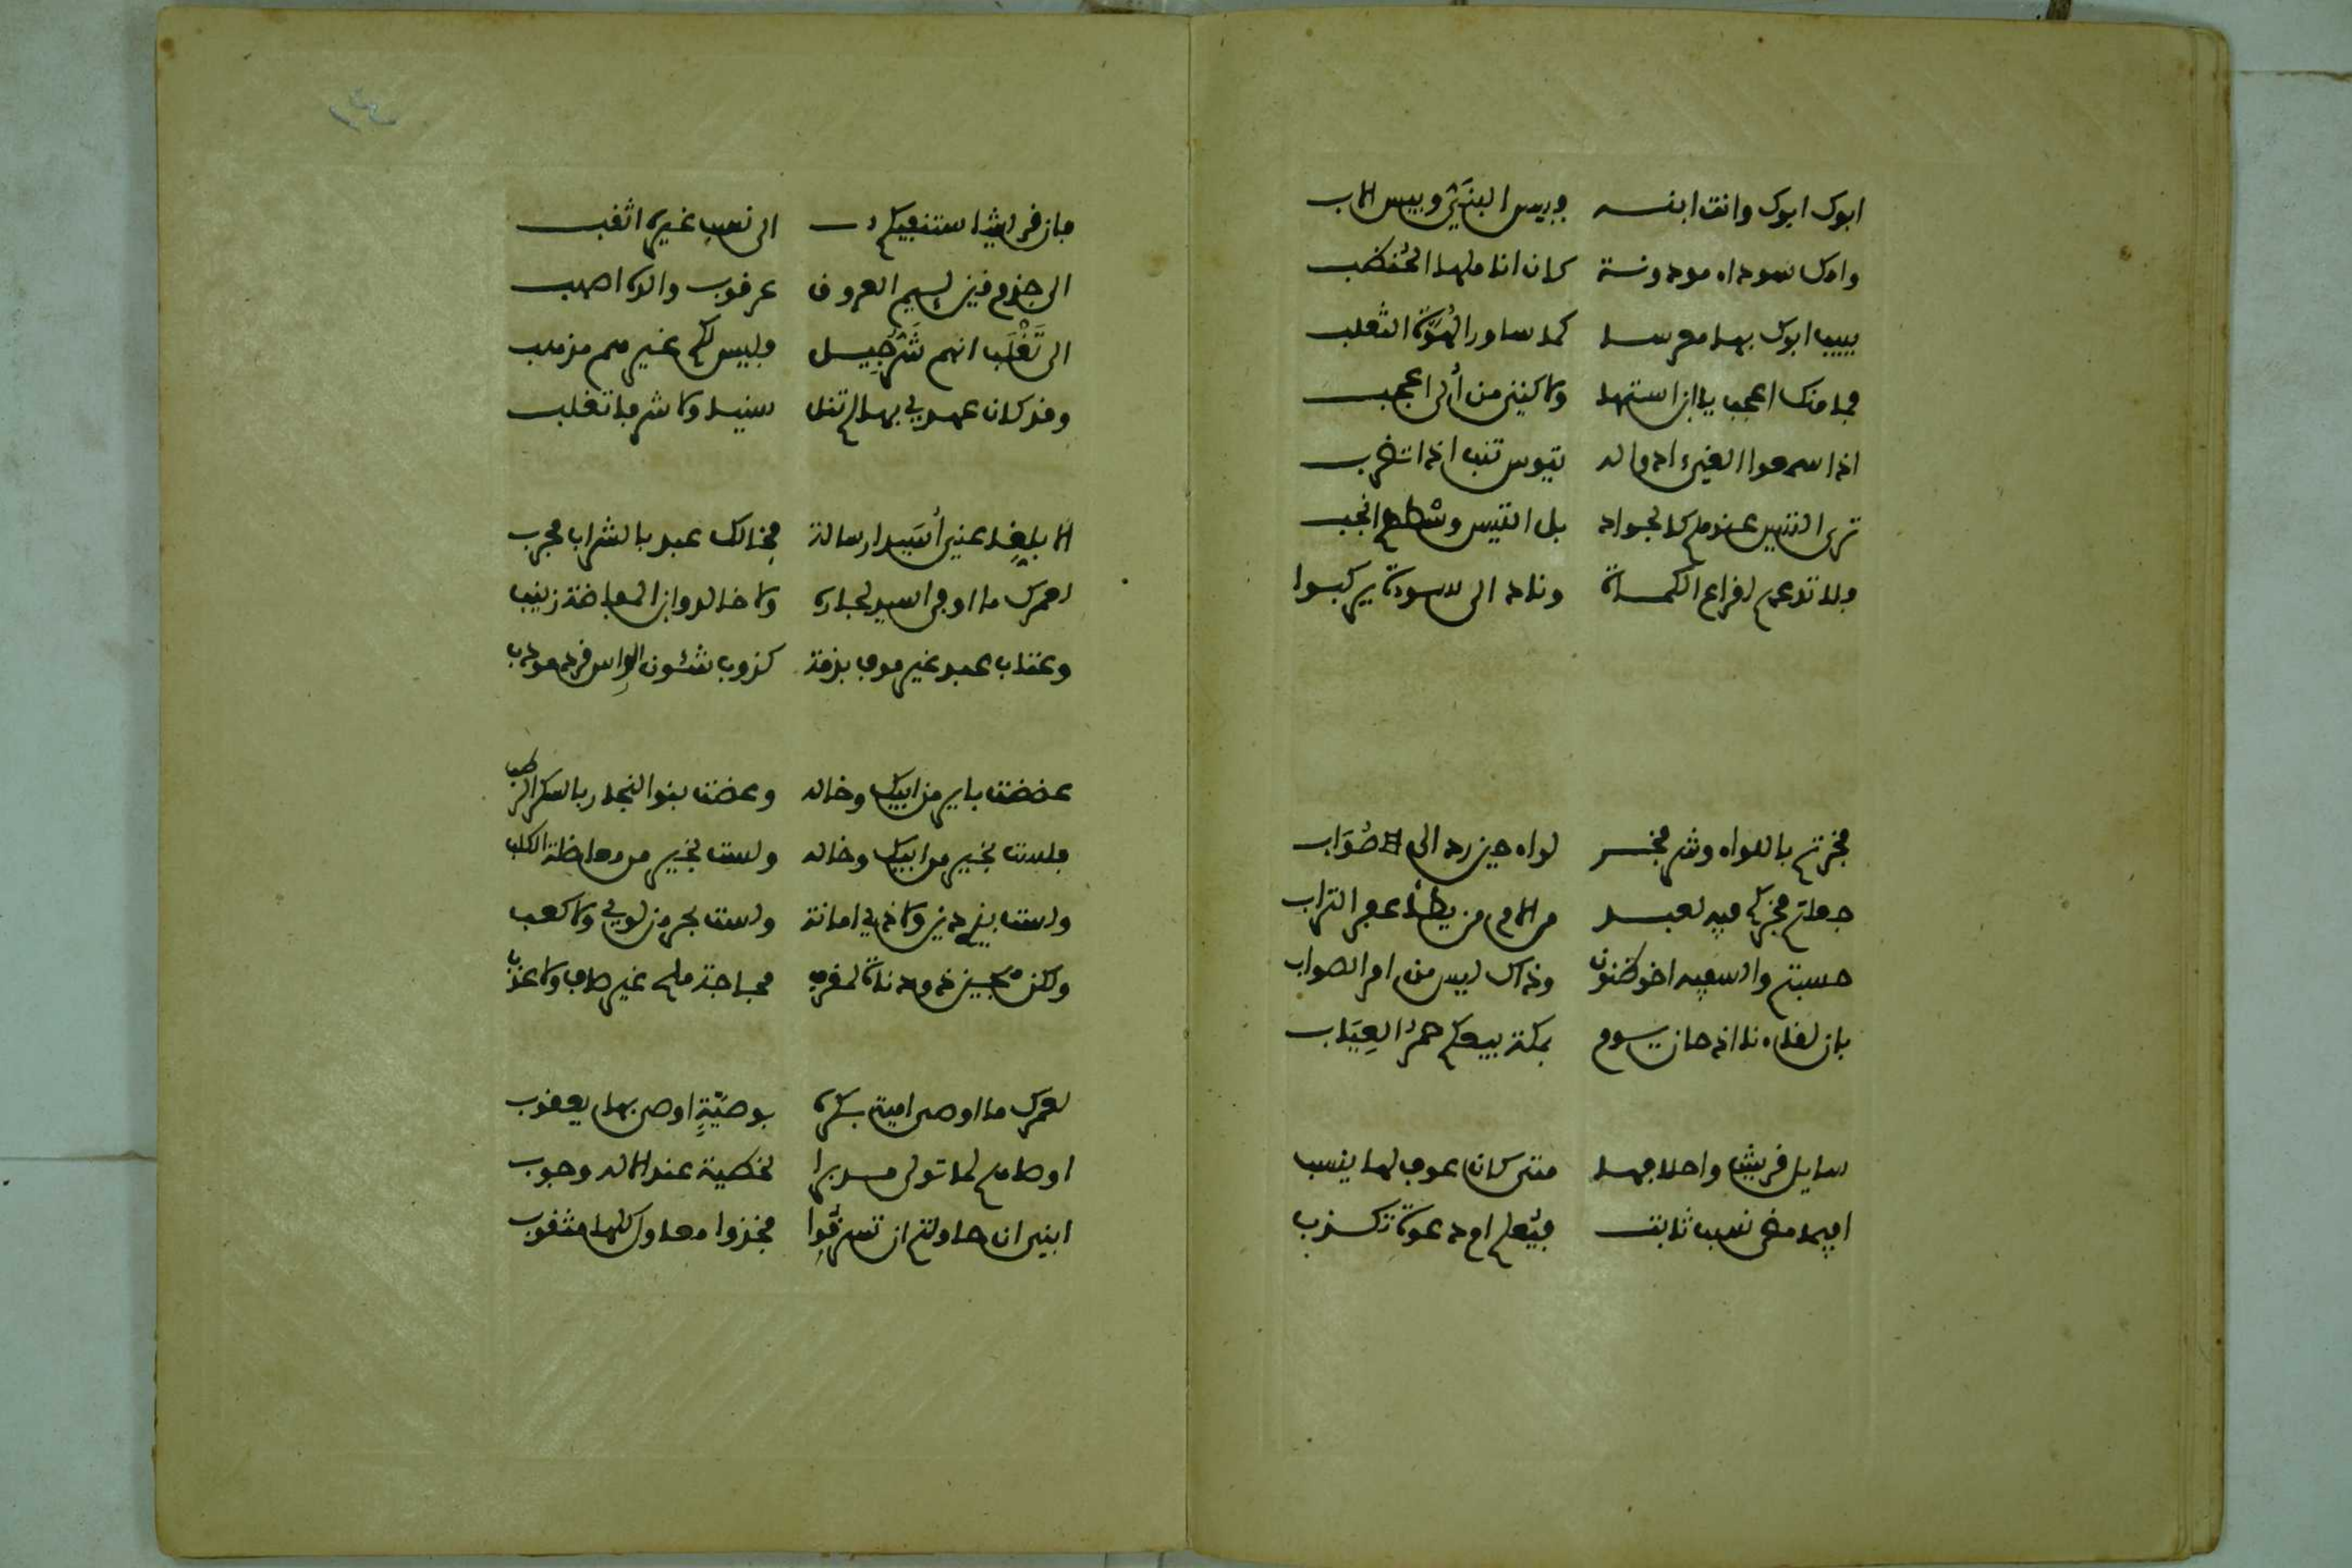 ابوك ابوك وانت ابنه فبيس البُنَيّ وبيس الاب
وامك سوداء مودونة كان اناملها الحُنظب
يبيت ابوك بها معرسا كما ساور الهُوَّة الثعلب
فما منك اعجب يا ابن استها ولاكنني من أُولى اعجب
اذا سمعوا الغيّ ءادوا له تيوس تنب اذا تضرب
ترى التيس عندهم كالجواد بل التيس وسْطهم انجب
فلا تدعهم لقراع الكماة وناد الى سوءة يركبوا
فخرتم باللواء وشر فخر لواء حين رد الى صُوَاب
جعلتم فخركم فيه لعبد من الام من يطأ عفر التراب
حسبتم والسفيه اخو ظنون وذاك ليس من امر الصواب
بان لقاءنا اذ حان يوم بمكة بيعكم حمرُ العِيَاب
سايل قريشا واحلافها متى كان عوف لها ينسب
افيما مضى نسب ثابت فيُعلم ام دعوة تكذب
فان قريشا ستنفيكم الى نسب غيره اثقب
الى جذم قين لييم العروق عرقوب والده اصهب
الى تَغْلَب انهم شَرُّ جِيل فليس لكم غيرهم مذهب
وقد كان عهدي بها لم تنل سنيا ولا شرفا تغلب
الا بلغا عني أُسَيدا رسالة فخالك عبد بالشراب مجرب
لعمرك ما اوفى اسيد لجاره ولا خالد وابن المفاضة زينب
وعتاب عبد غير موف بذمة كذوب شئون الراس قرد مودب
عضضت باير من ابيك وخاله وعضت بنوا النجار بالسكر الرطب
فلست بخير من ابيك وخاله ولست بخير من معاظلة الكلب
ولست بذي دين ولا ذي امانة ولست بحر من لوي ولا كعب
ولكن هجين ذو دناة لمقرف مجاجة ملح غير صاف ولا عذب
لعمرك ما اوصى امية بكره بوصيّةٍ اوصى بها يعقوب
اوصاهم لما تولى مدبرا بخطية عند الاله وحوب
ابني ان حاولتم ان تسرقُوا فخذوا معاول كلها مثقوب